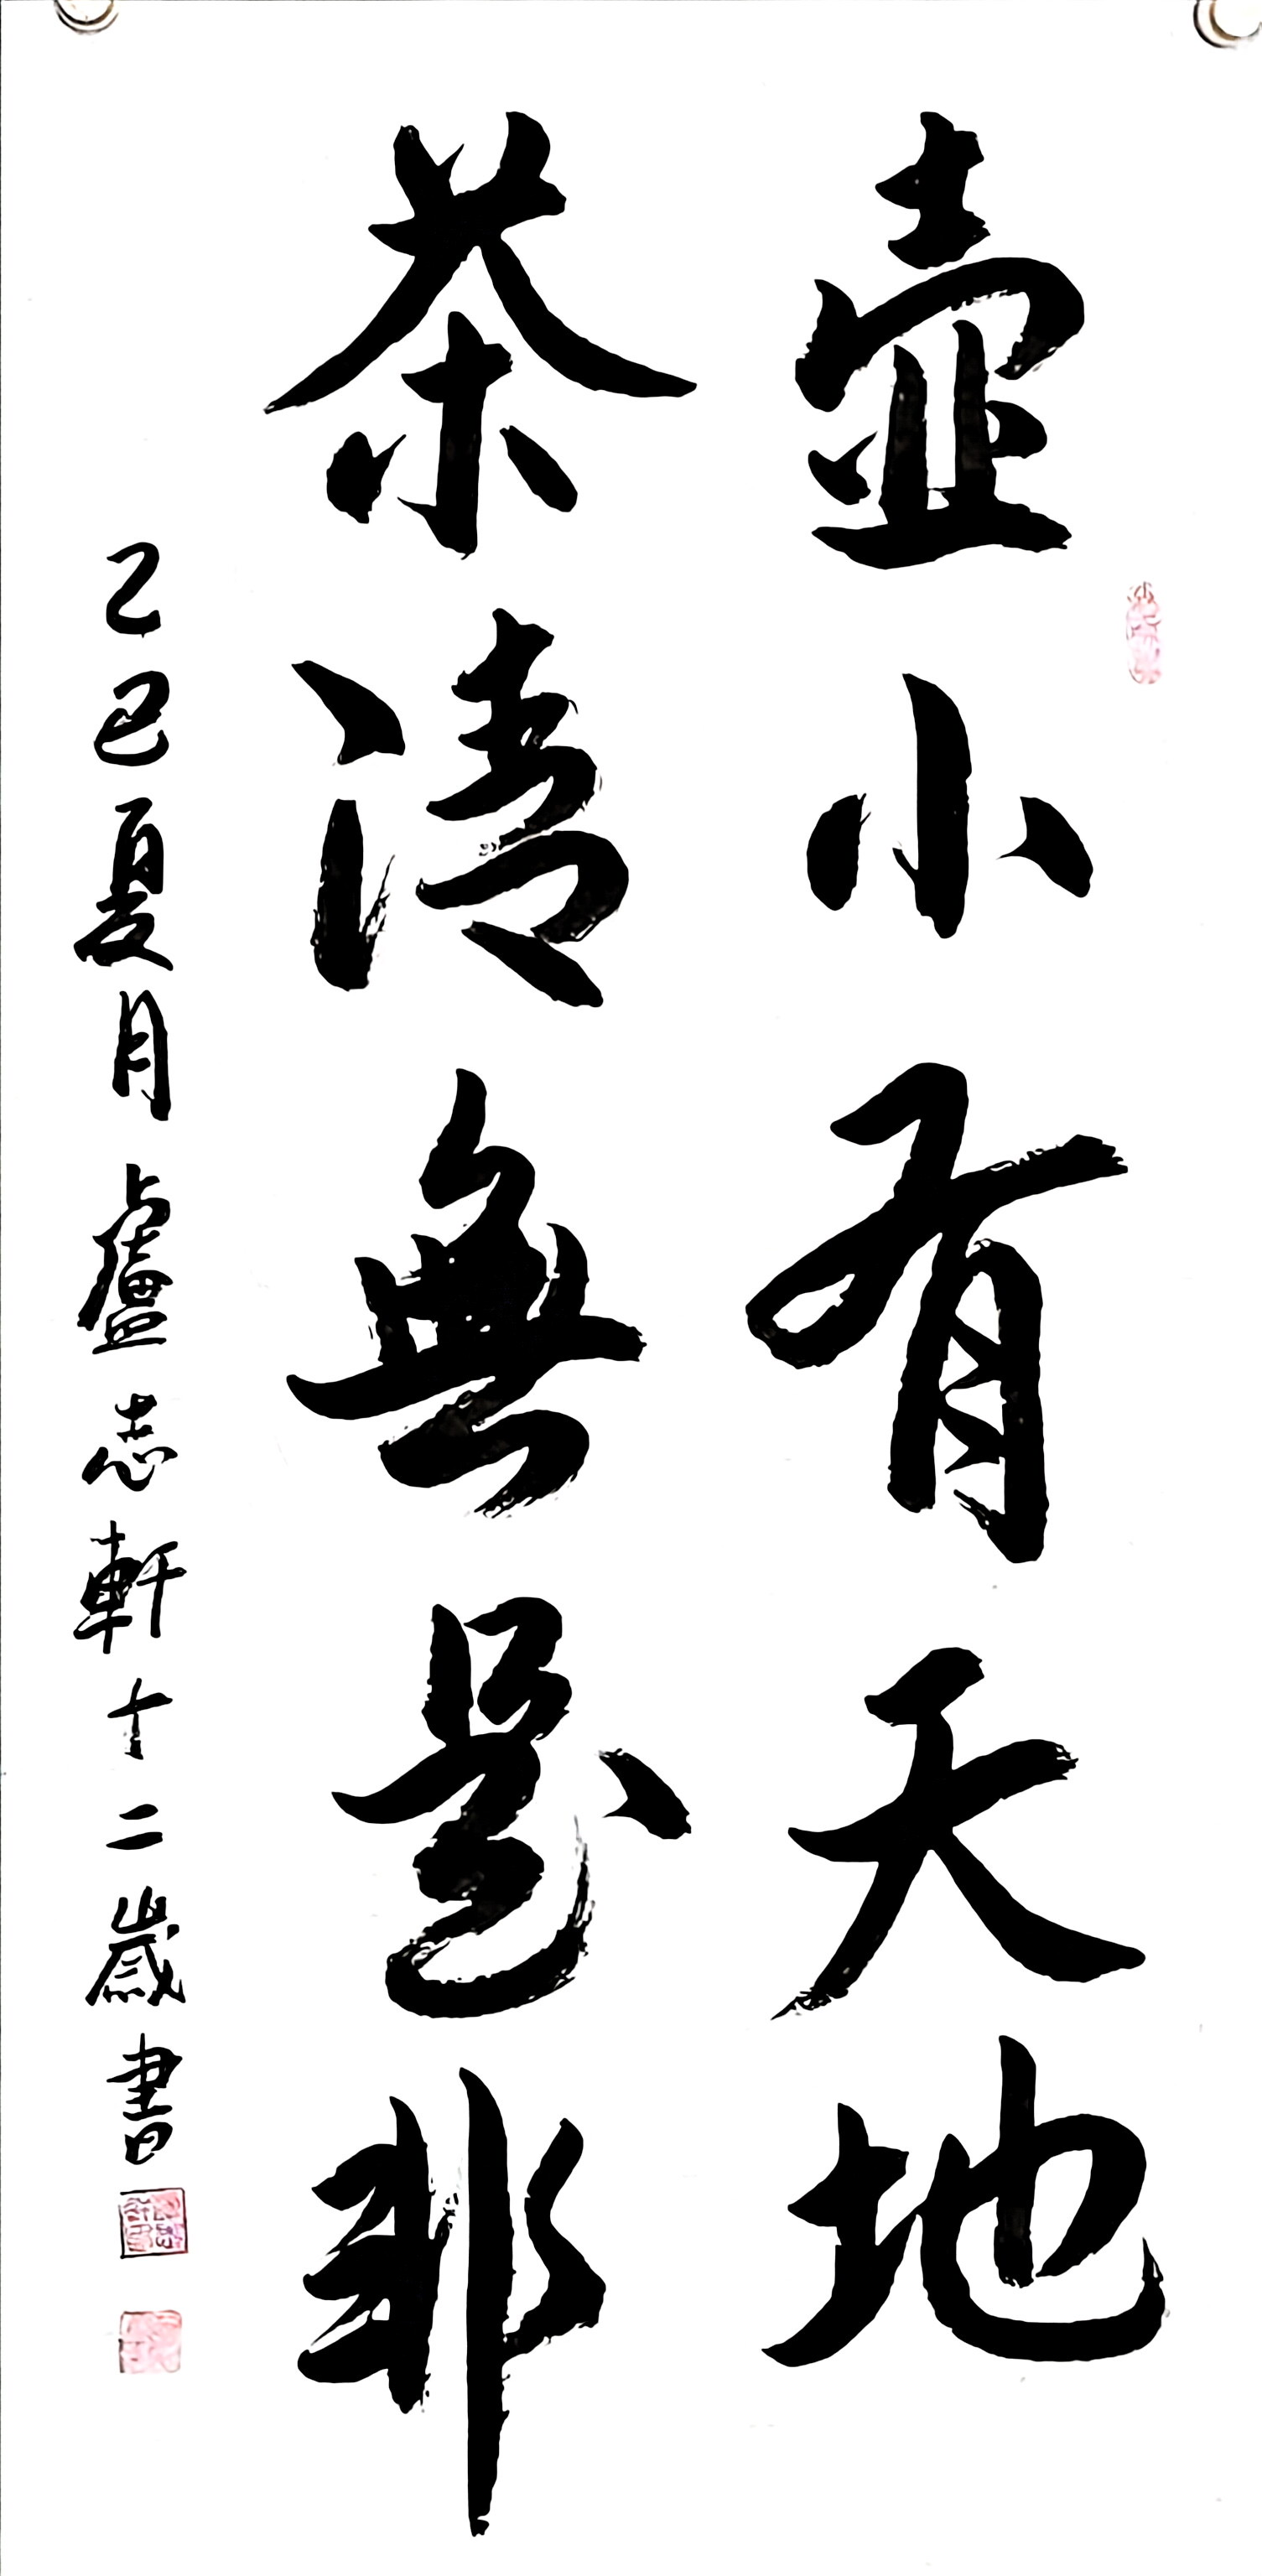 壺小有天地
茶清無是非
乙巳夏月盧志軒十二歲書